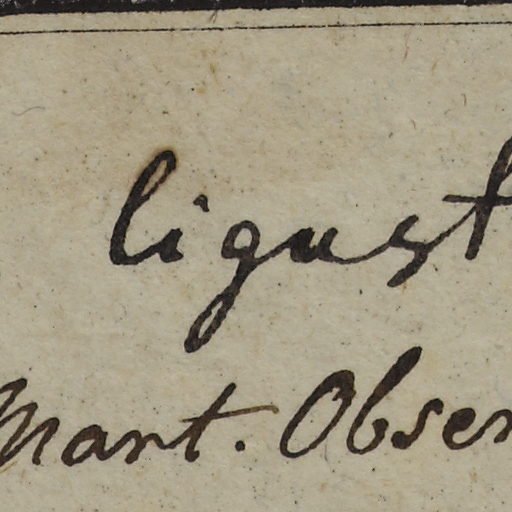 ligust
Mant. Obser